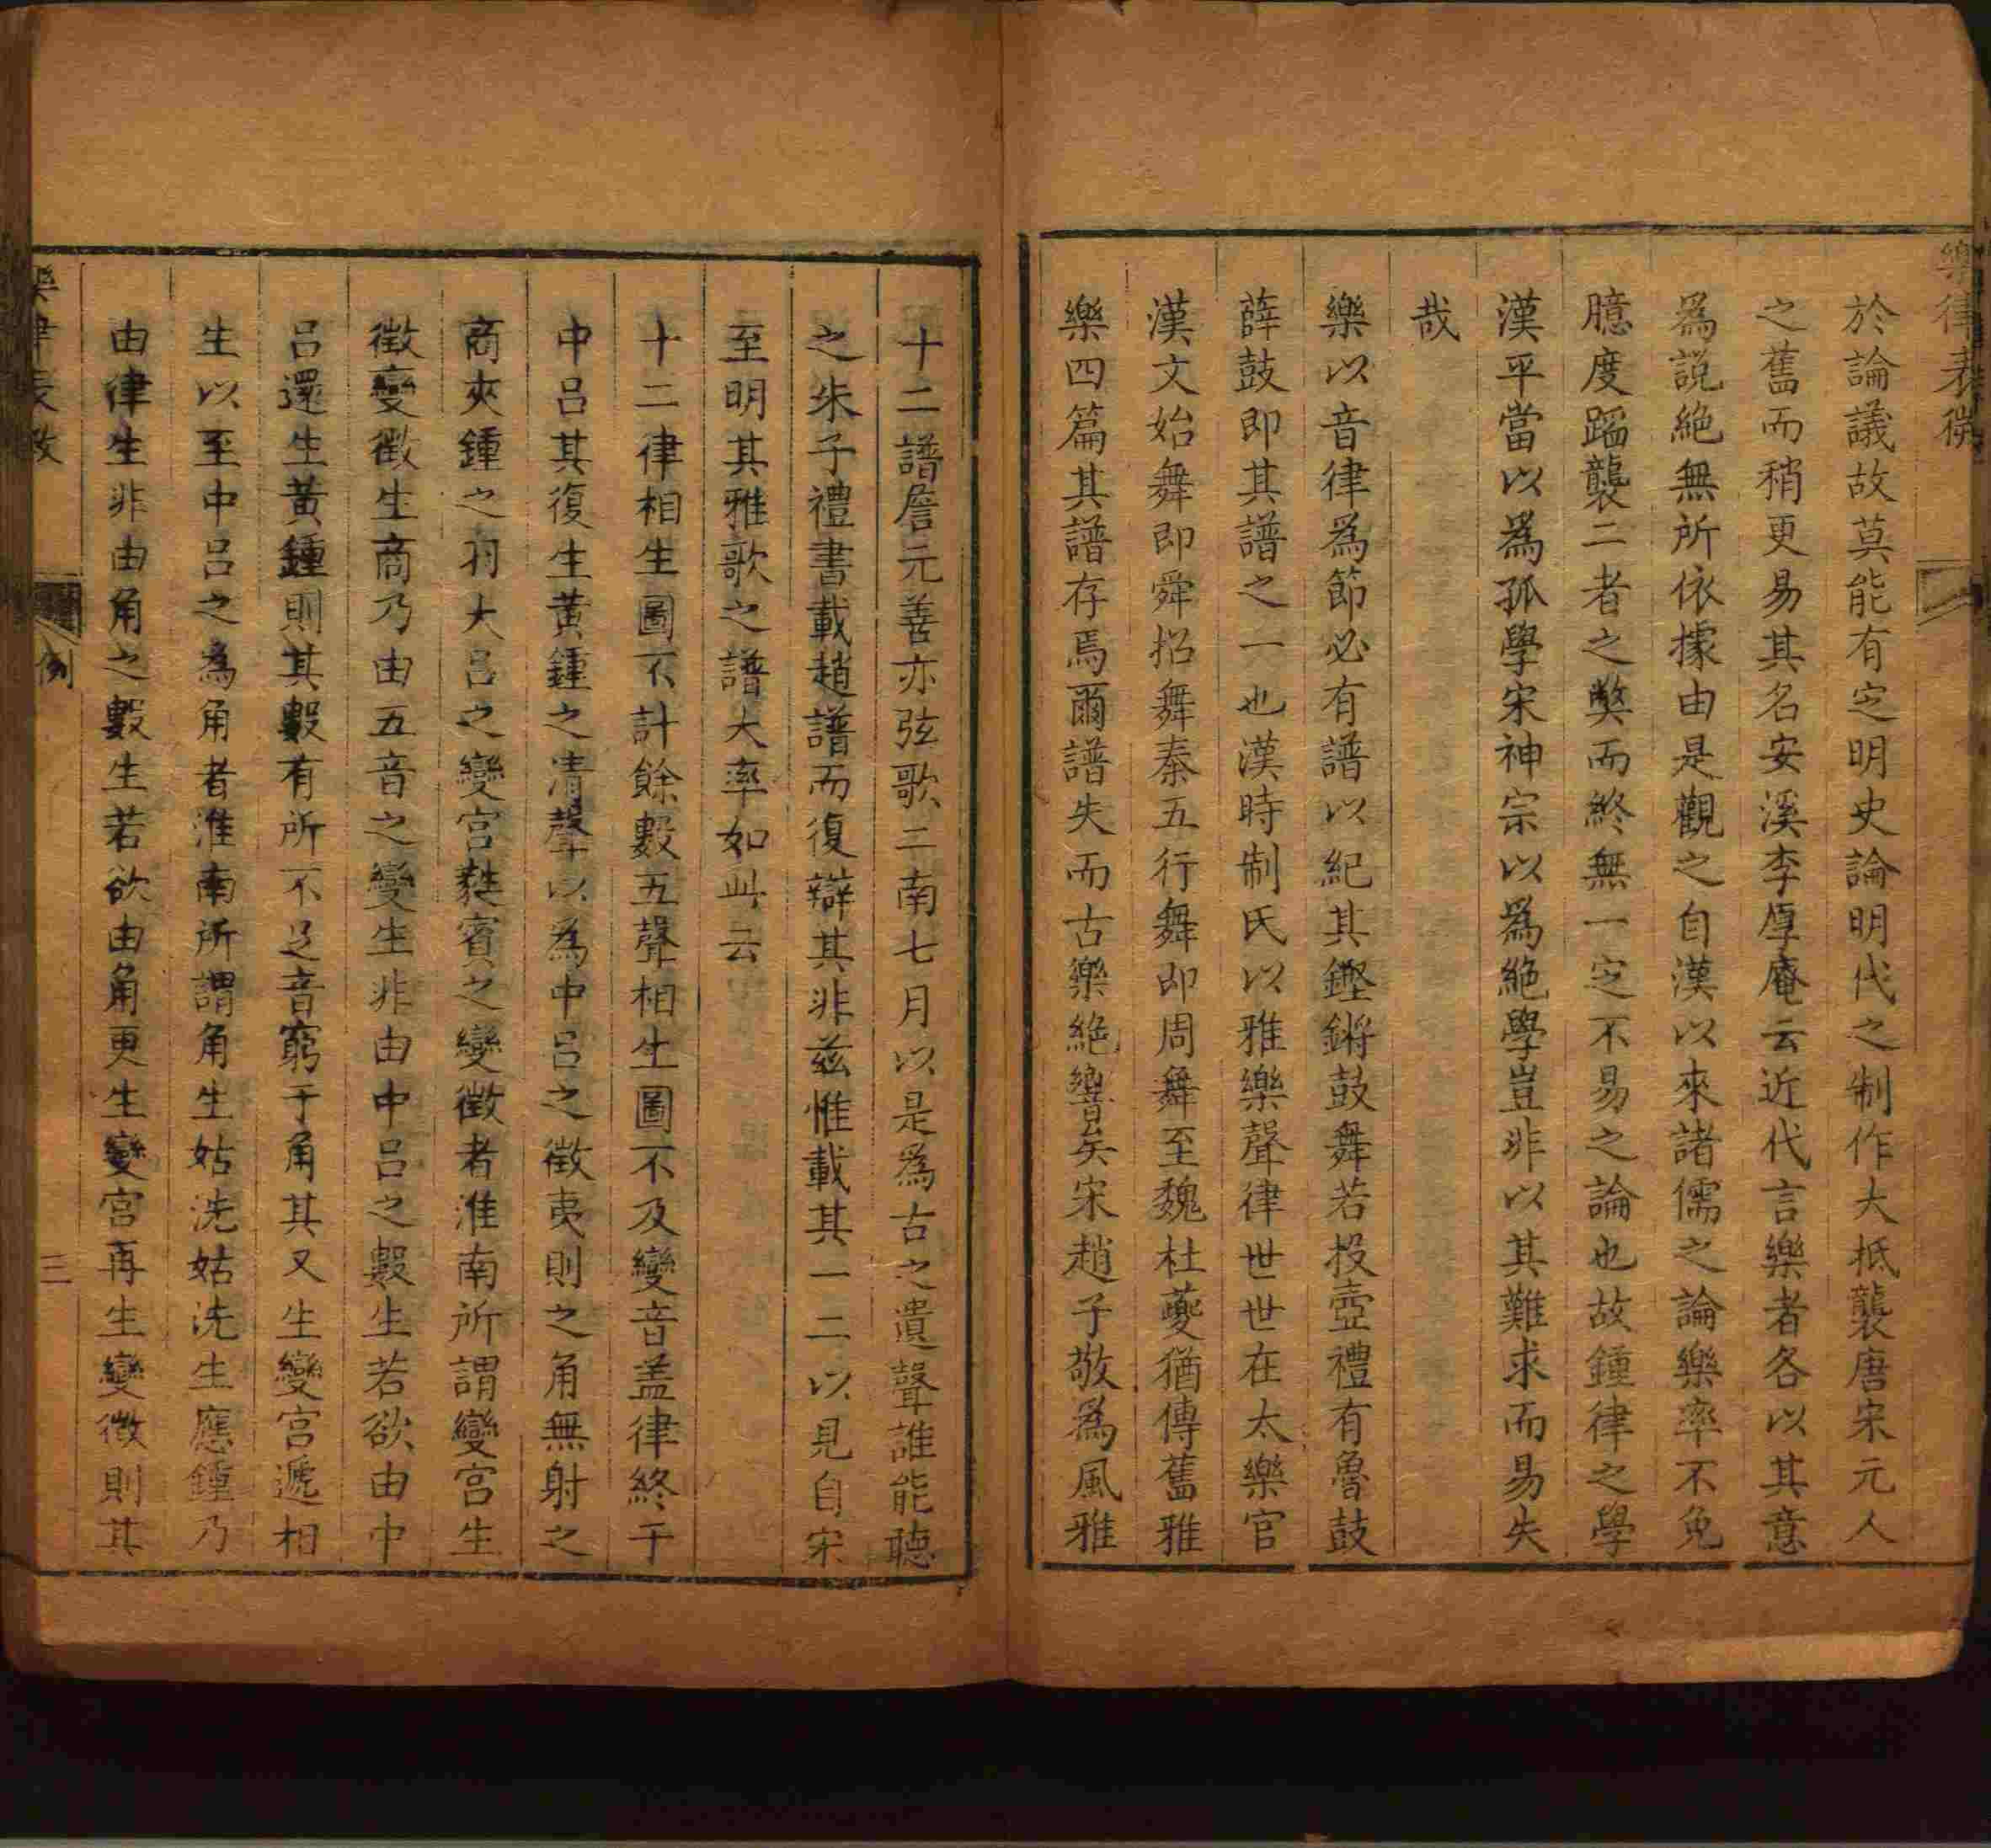 樂律表微
於論議故莫能有定明史論明代之制作大抵襲唐宋元人
之舊而稍更易其名安溪李厚庵云近代言樂者各以其意
爲説絶無所依據由是觀之自漢以來諸儒之論樂率不免
臆度蹈襲二者之獘而終無一定不易之論也故鍾律之學
漢平當以爲孤學宋神宗以爲絶學豈非以其難求而易失
哉
樂以音律爲節必有譜以紀其鏗鏘鼓舞若投壺禮有魯鼓
薛鼓即其譜之一也漢時制氏以雅樂聲律世世在太樂官
漢文始舞即舜招舞秦五行舞即周舞至魏杜夔猶傳舊雅
樂四篇其譜存焉爾譜失而古樂絶響矣宋趙子敬爲風雅
十二譜詹元善亦弦歌二南七月以是爲古之遺聲誰能聽
之朱子禮書載趙譜而復辯其非兹惟載其一二以見自宋
至明其雅歌之譜大率如此云
十二律相生圖不計餘數五聲相生圖不及變音盖律終于
中呂其復生黄鍾之清聲以為中呂之徵夷則之角無射之
商夾鍾之羽大呂之變宮蕤賓之變徵者淮南所謂變宮生
徵變徵生商乃由五音之變生非由中呂之數生若欲由中
呂還生黃鍾則其數有所不足音窮于角其又生變宮遞相
生以至中呂之為角者淮南所謂角生姑洗姑洗生應鍾乃
由律生非由角之數生若欲由角更生變宮再生變徵則其
樂律表微
例
三